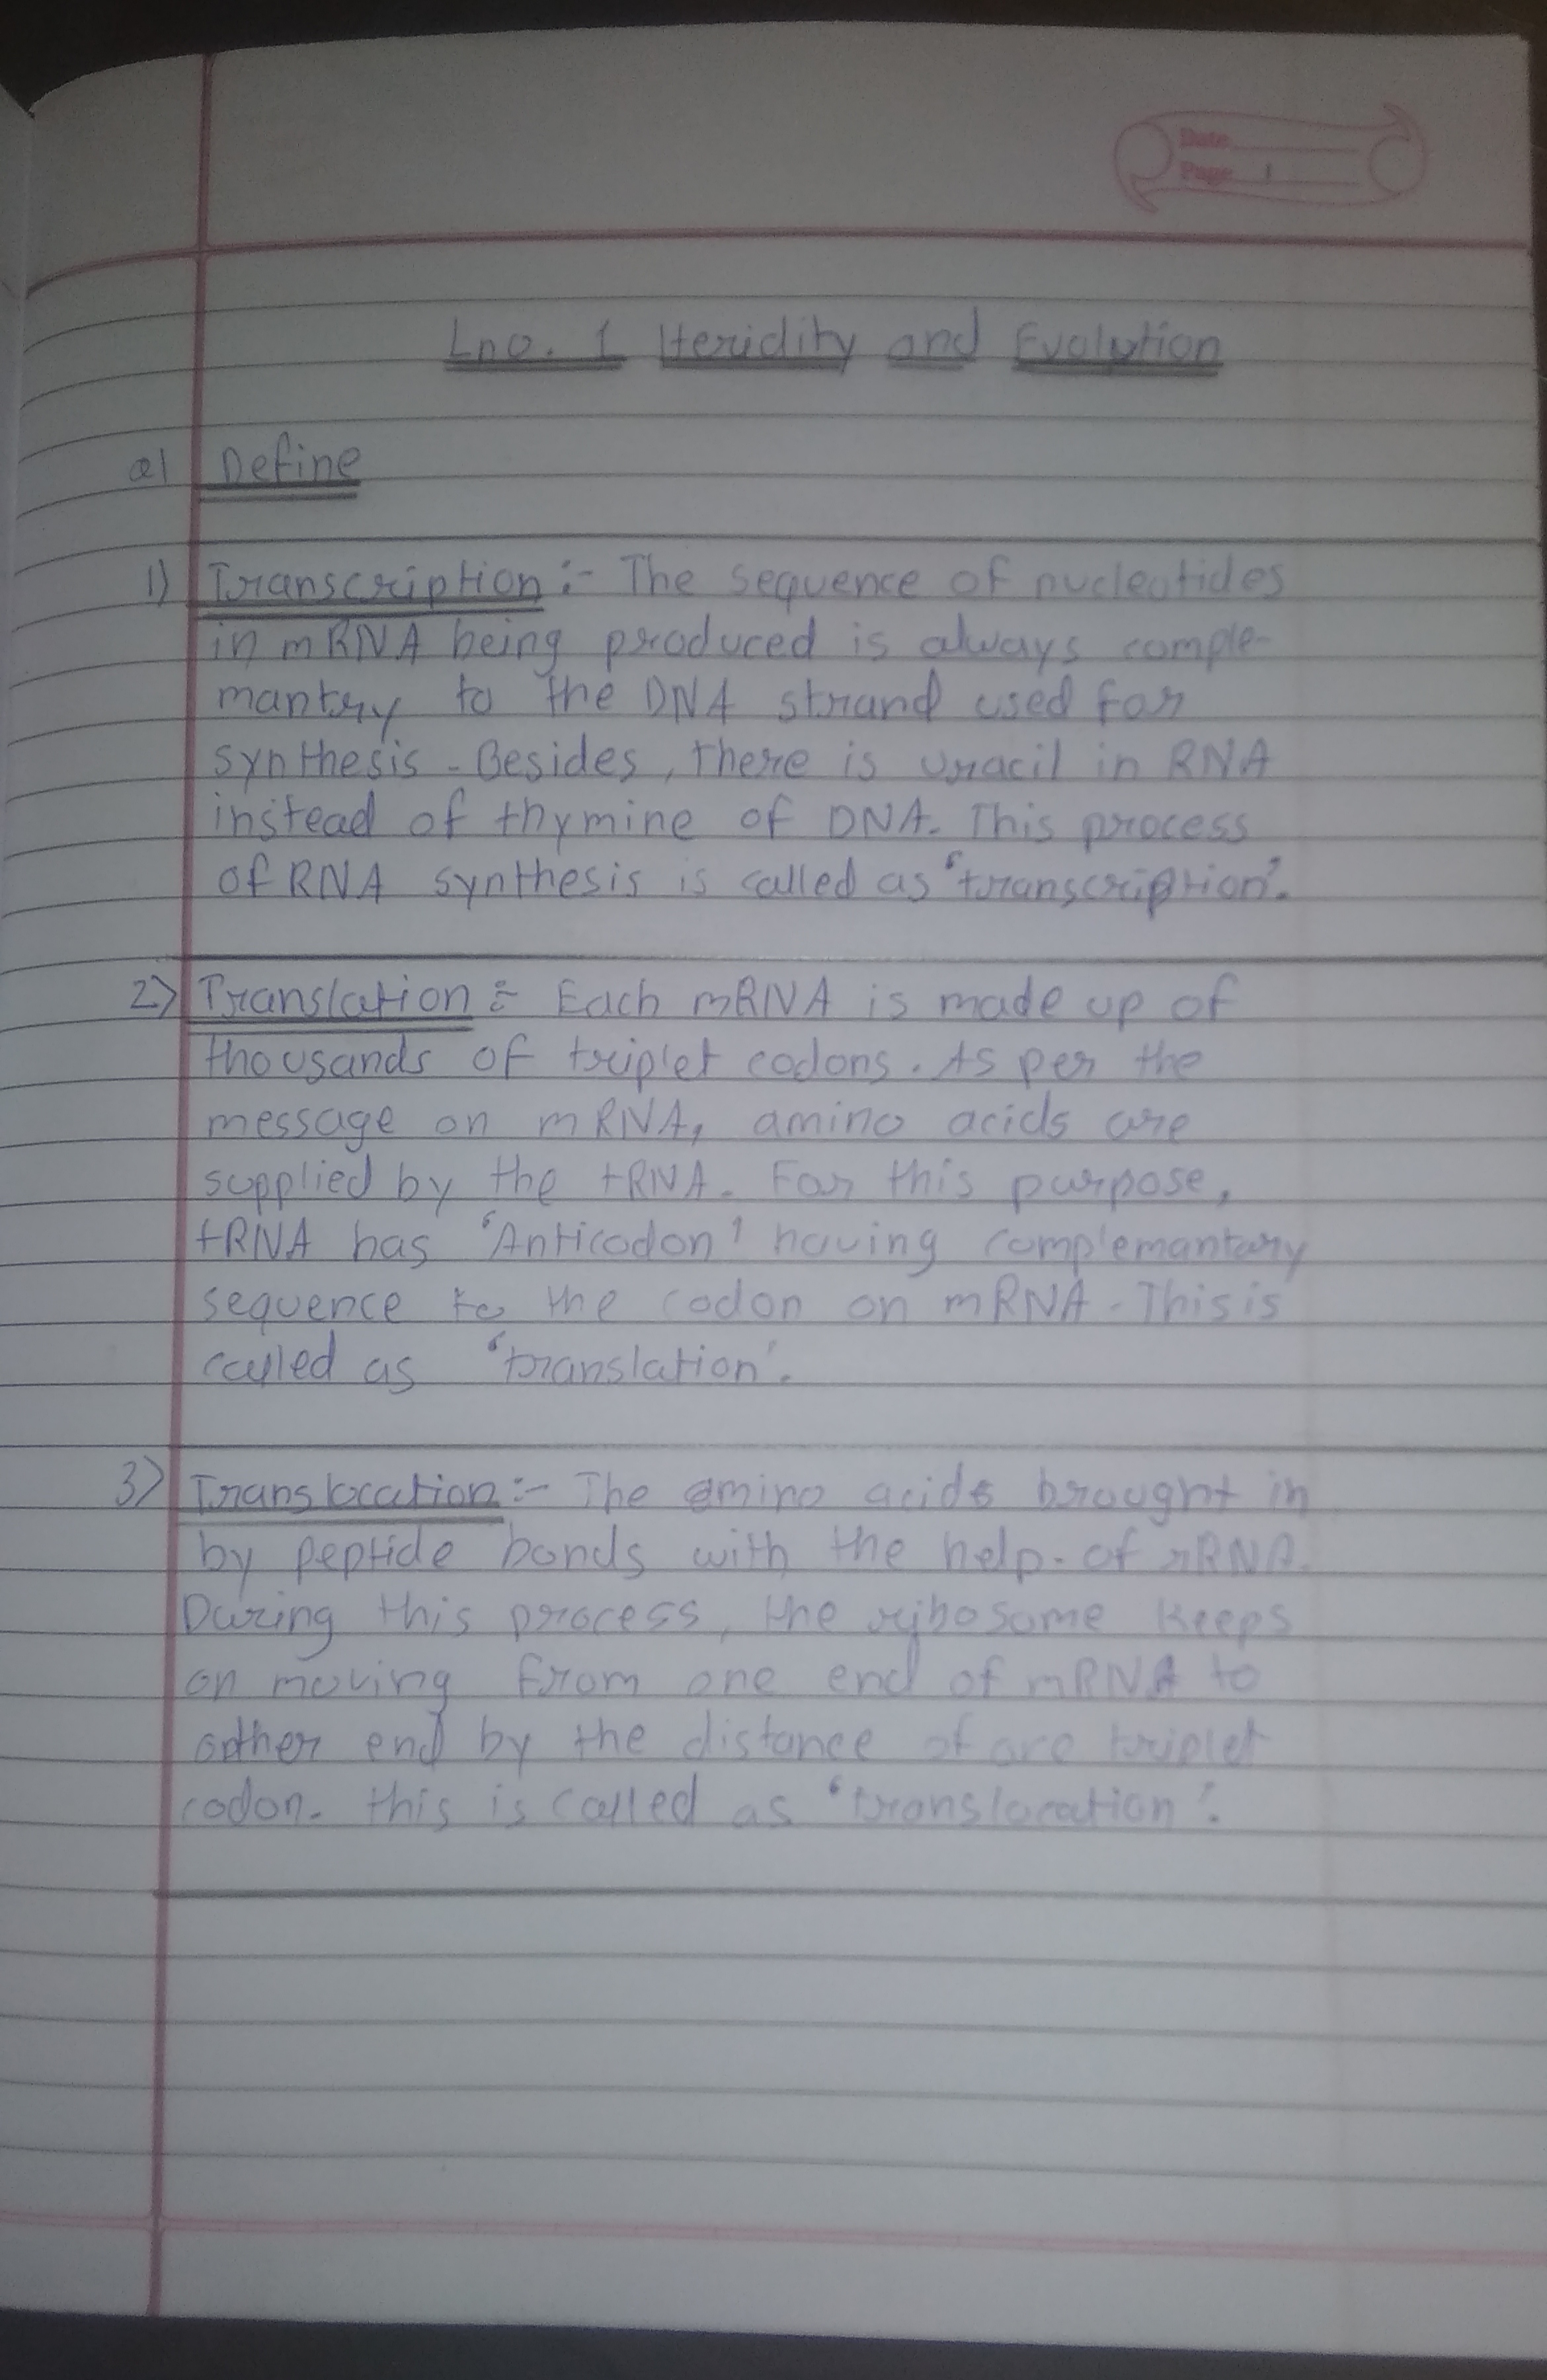 Date
Page 1
Lno. 1 Heridity and Evolution
a) Define
1) Transcription :- The sequence of nucleotides
in mRNA being produced is always comple-
mantry to the DNA strand used for
synthesis - Besides, there is uracil in RNA
instead of thymine of DNA. This process
of RNA synthesis is called as 'transcription'.
2) Translation :- Each mRNA is made up of
thousands of triplet codons. As per the
message on mRNA, amino acids are
supplied by the tRNA. For this purpose,
tRNA has 'Anticodon' having complemantary
sequence to the codon on mRNA - This is
called as 'translation'.
3) Translocation :- The amino acids brought in
by peptide bonds with the help. of rRNA.
During this process, the ribosome keeps
on moving from one end of mRNA to
other end by the distance of are triplet
codon. this is called as 'translocation'.